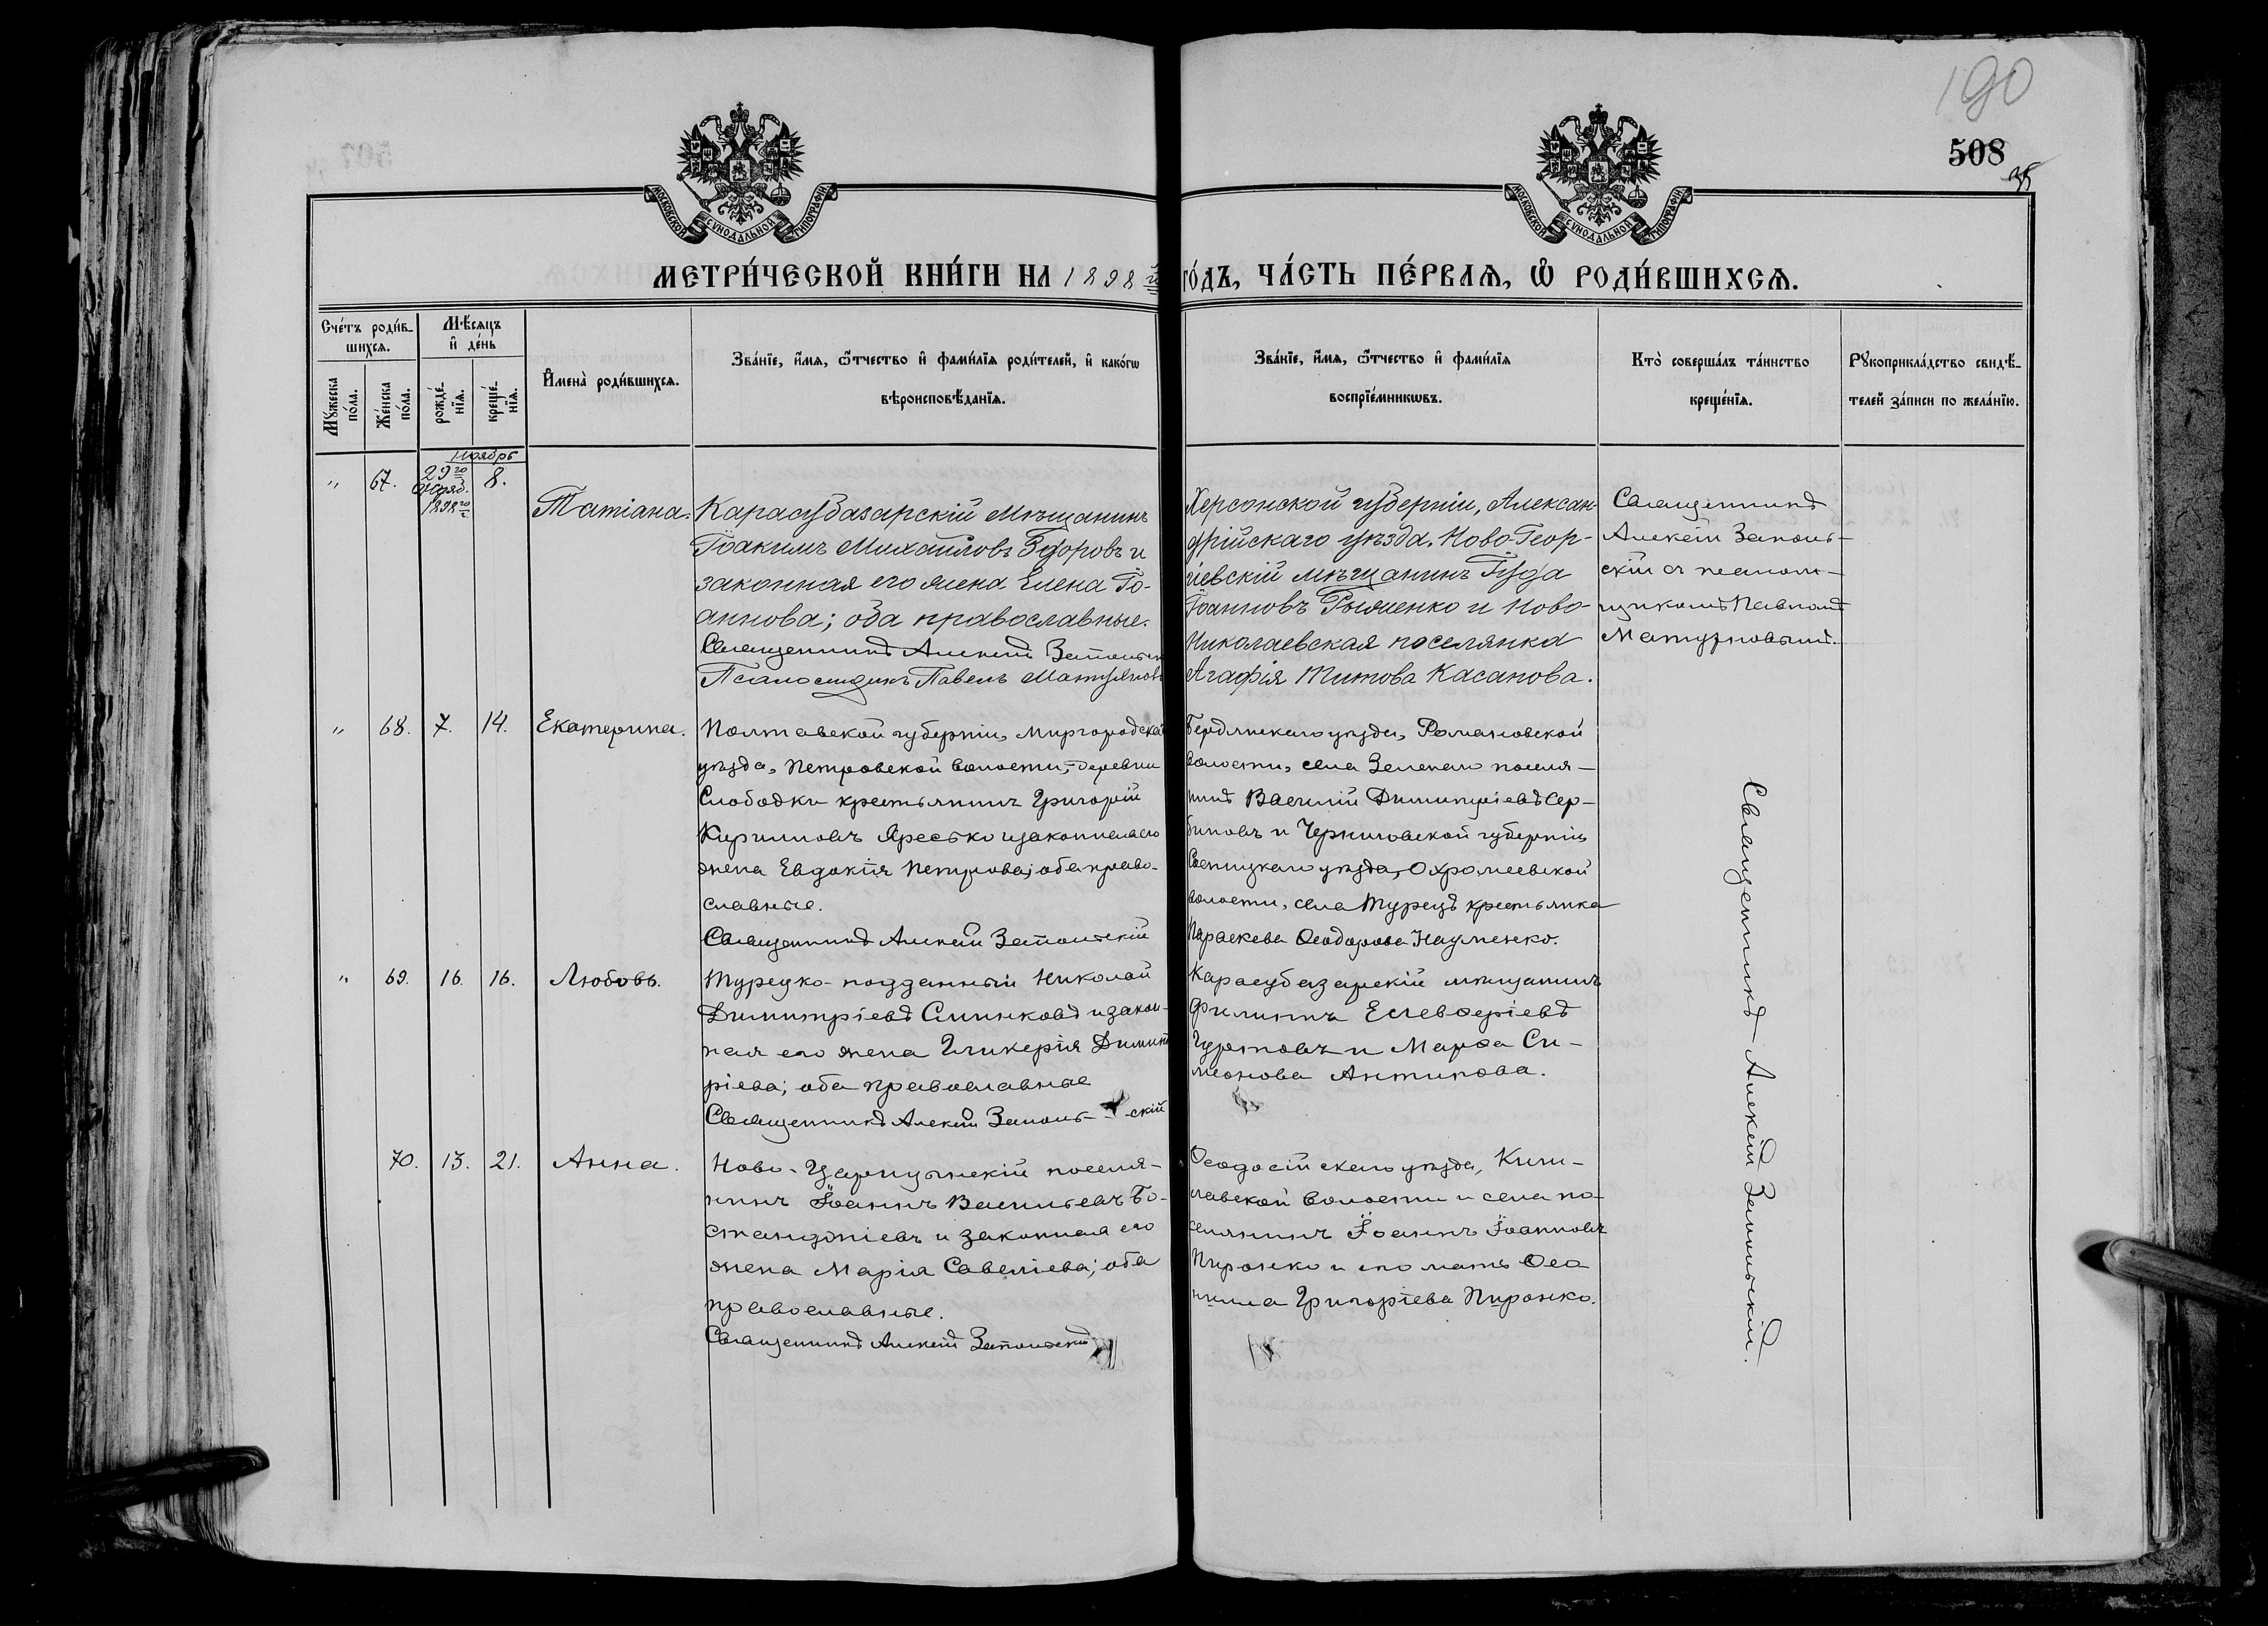 190
508
МОСКОВСКОЙ СѴНОДАЛЬНОЙ ТИПОГРАФІИ
МОСКОВСКОЙ СѴНОДАЛЬНОЙ ТИПОГРАФІИ
МЕТРИ́ЧЕСКОЙ КНИ́ГИ НА 1898 й ГО́ДЪ, ЧА́СТЬ ПЕ́РВАѦ, Ѽ РОДИ́ВШИХСѦ.
Сче́тъ роди́в-
шихсѧ.
Мꙋ́жеска
по́ла.
Же́нска
по́ла.
Мѣ́сѧцъ
и҆ де́нь
рожде́-
нїѧ.
креще́-
нїѧ.
И҆мена̀ роди́вшихсѧ.
Зва́нїе, и҆́мѧ, ѻ҆́тчество и҆ фами́лїѧ роди́телей, и҆ како́гѡ
вѣроисповѣ́данїѧ.
Зва́нїе, и҆́мѧ, ѻ҆́тчество и҆ фами́лїѧ
воспрїе́мникѡвъ.
Кто̀ соверша́лъ та́инство
креще́нїѧ.
Рꙋкоприкла́дство свидѣ́-
телей за́писи по жела́нїю.
Ноябрь
„ 67. 29го Октяб. 1898го г. 8.
Татіана.
Карасубазарскій мѣщанинъ
Іоакимъ Михаиловъ Здоровъ и
законная его жена Елена Іо-
аннова; оба православные.
Священникъ Алексѣй Запольск
Псаломщикъ Павелъ Матуяновъ
Херсонской губерніи, Алексан-
дрійскаго уѣзда, Ново-Геор-
гіевскій мѣщанинъ Іуда
Іоанновъ Рыженко и Ново-
Николаевская поселянка
Агафія Титова Касанова.
Священникъ
Алексѣй Заполь-
скій съ псалом-
щикомъ Павломъ
„ 68. 7. 14. Екатерина.
Полтавской губерніи, Миргородска
уѣзда, Петровской волости, деревни
Слободки крестьянинъ Григорій
Кирилловъ Яресько и законная его
жена Евдокія Петрова; оба право-
славные.
Священникъ Алексѣй Запольскій
Бердянскаго уѣзда, Романовской
волости, села Зеленаго поселя-
нинъ Василій Димитріевъ Сер-
биновъ и Черниговской губерніи
уѣзда, Охромеевской
волости, села Турецъ крестьянка
Параскева Ѳеодорова Науменко.
„ 69. 16. 16. Любовь.
Турецко-подданный Николай
Димитріевъ Слинковъ и закон-
ная его жена Гликерія Димит
ріева; оба православные
Священникъ Алексѣй Заполь- -скій
Карасубазарскій мѣщанинъ
Филиппъ Елевѳеріевъ
и Марѳа Си-
меонова Антипова.
70. 13. 21. Анна.
Ново-Царицынскій поселя-
нинъ Іоаннъ Васильевъ Бо-
станджіевъ и законная его
жена Марія Савеліева; оба
православные.
Священникъ Алексѣй Запольскій
Ѳеодосійскаго уѣзда,
волости и села по-
селянинъ Іоаннъ Іоанновъ
Пиронко и его мать
Григоріева Пиронко.
Священникъ Алексѣй Запольскій.